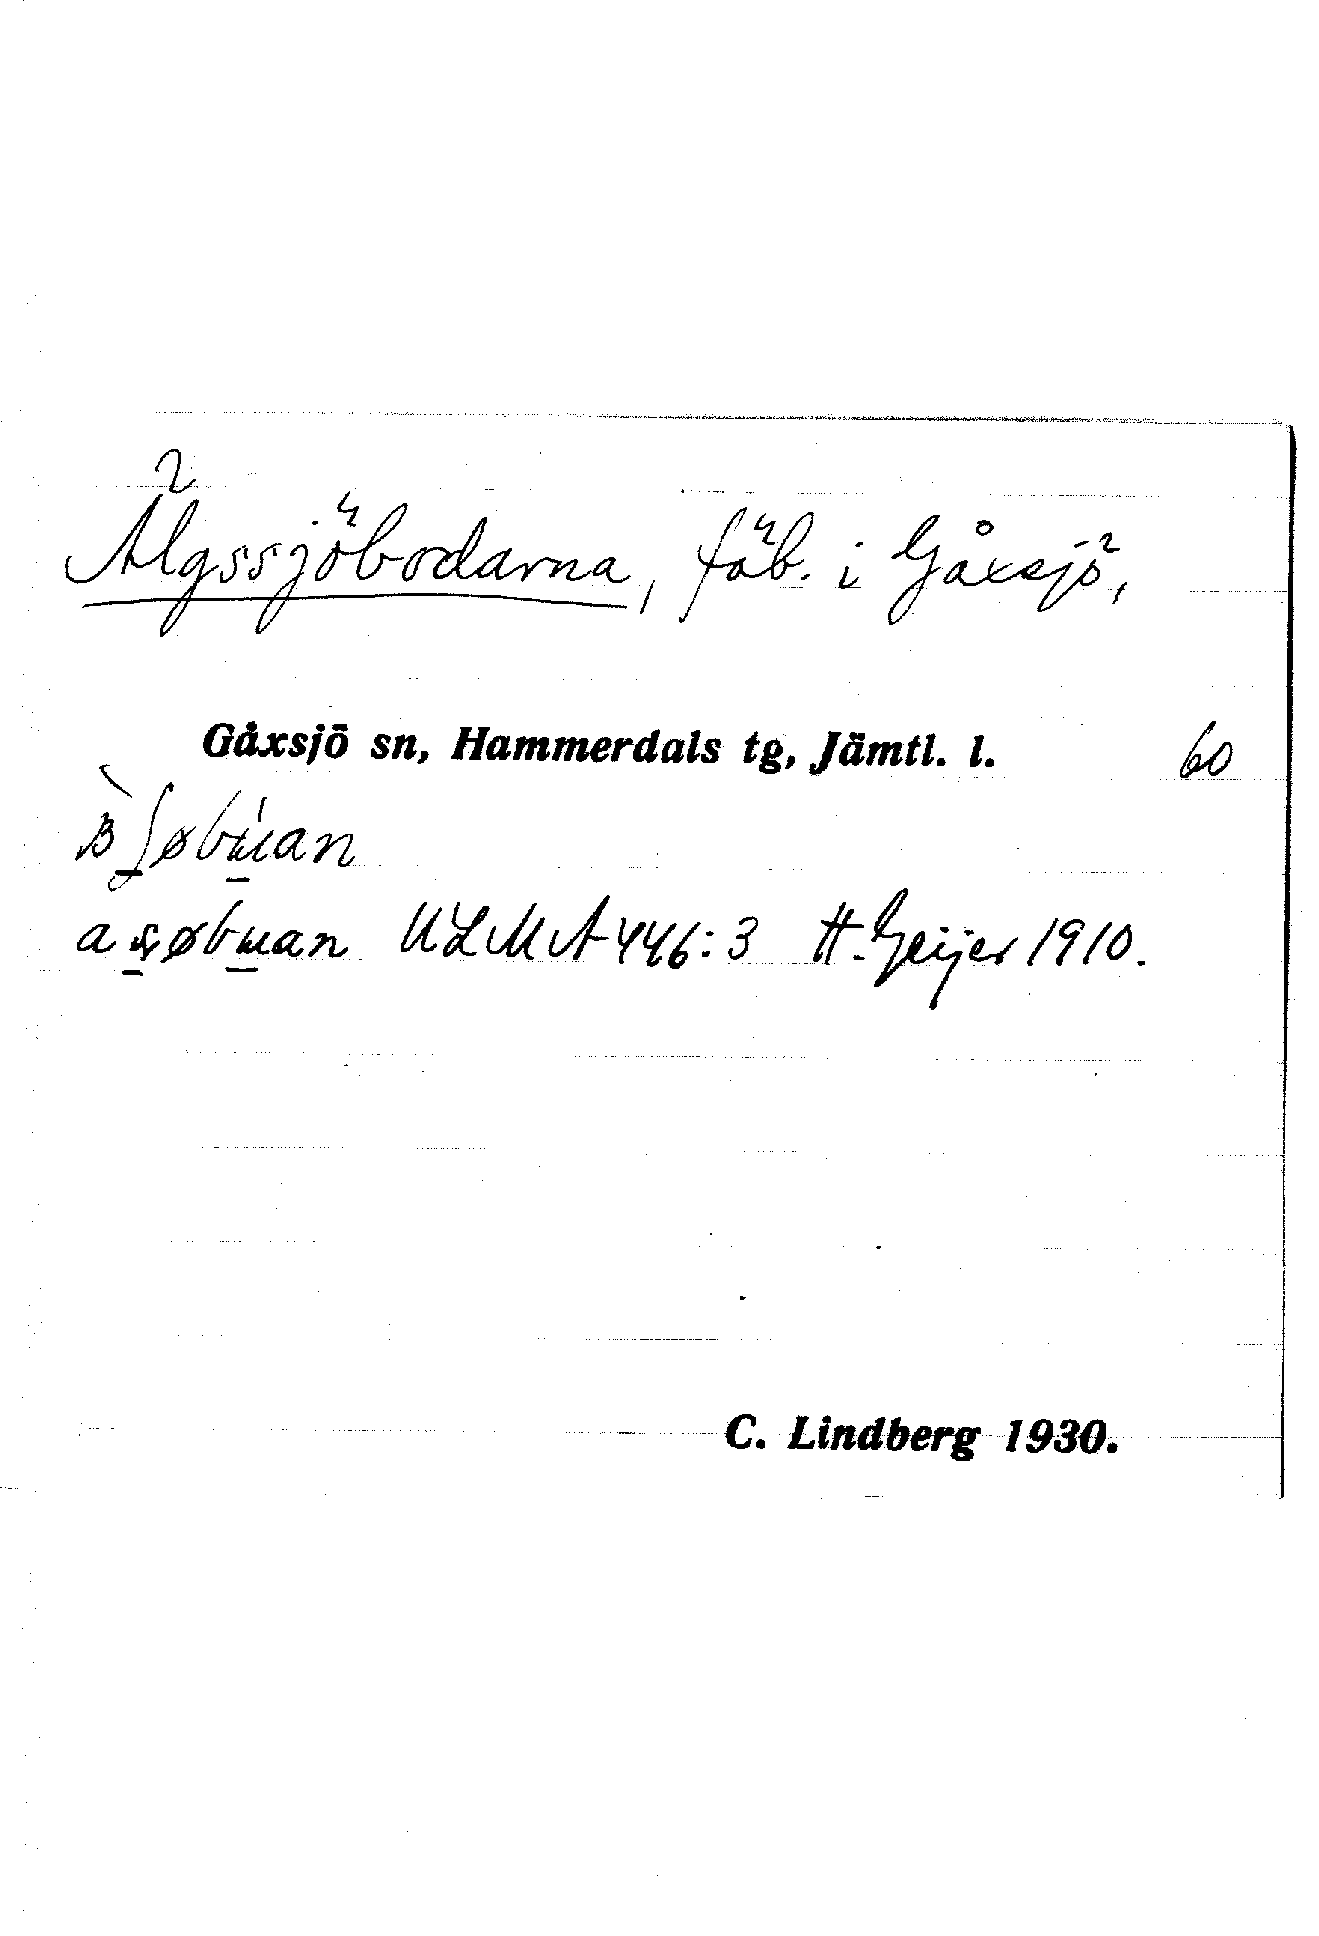 Älgssjöbodarna, fäb. i Gåxsjö,
Gåxsjö sn, Hammerdals tg, Jämtl. l. 60
ULMA 446:3 H. Geijer 1910.
C. Lindberg 1930.